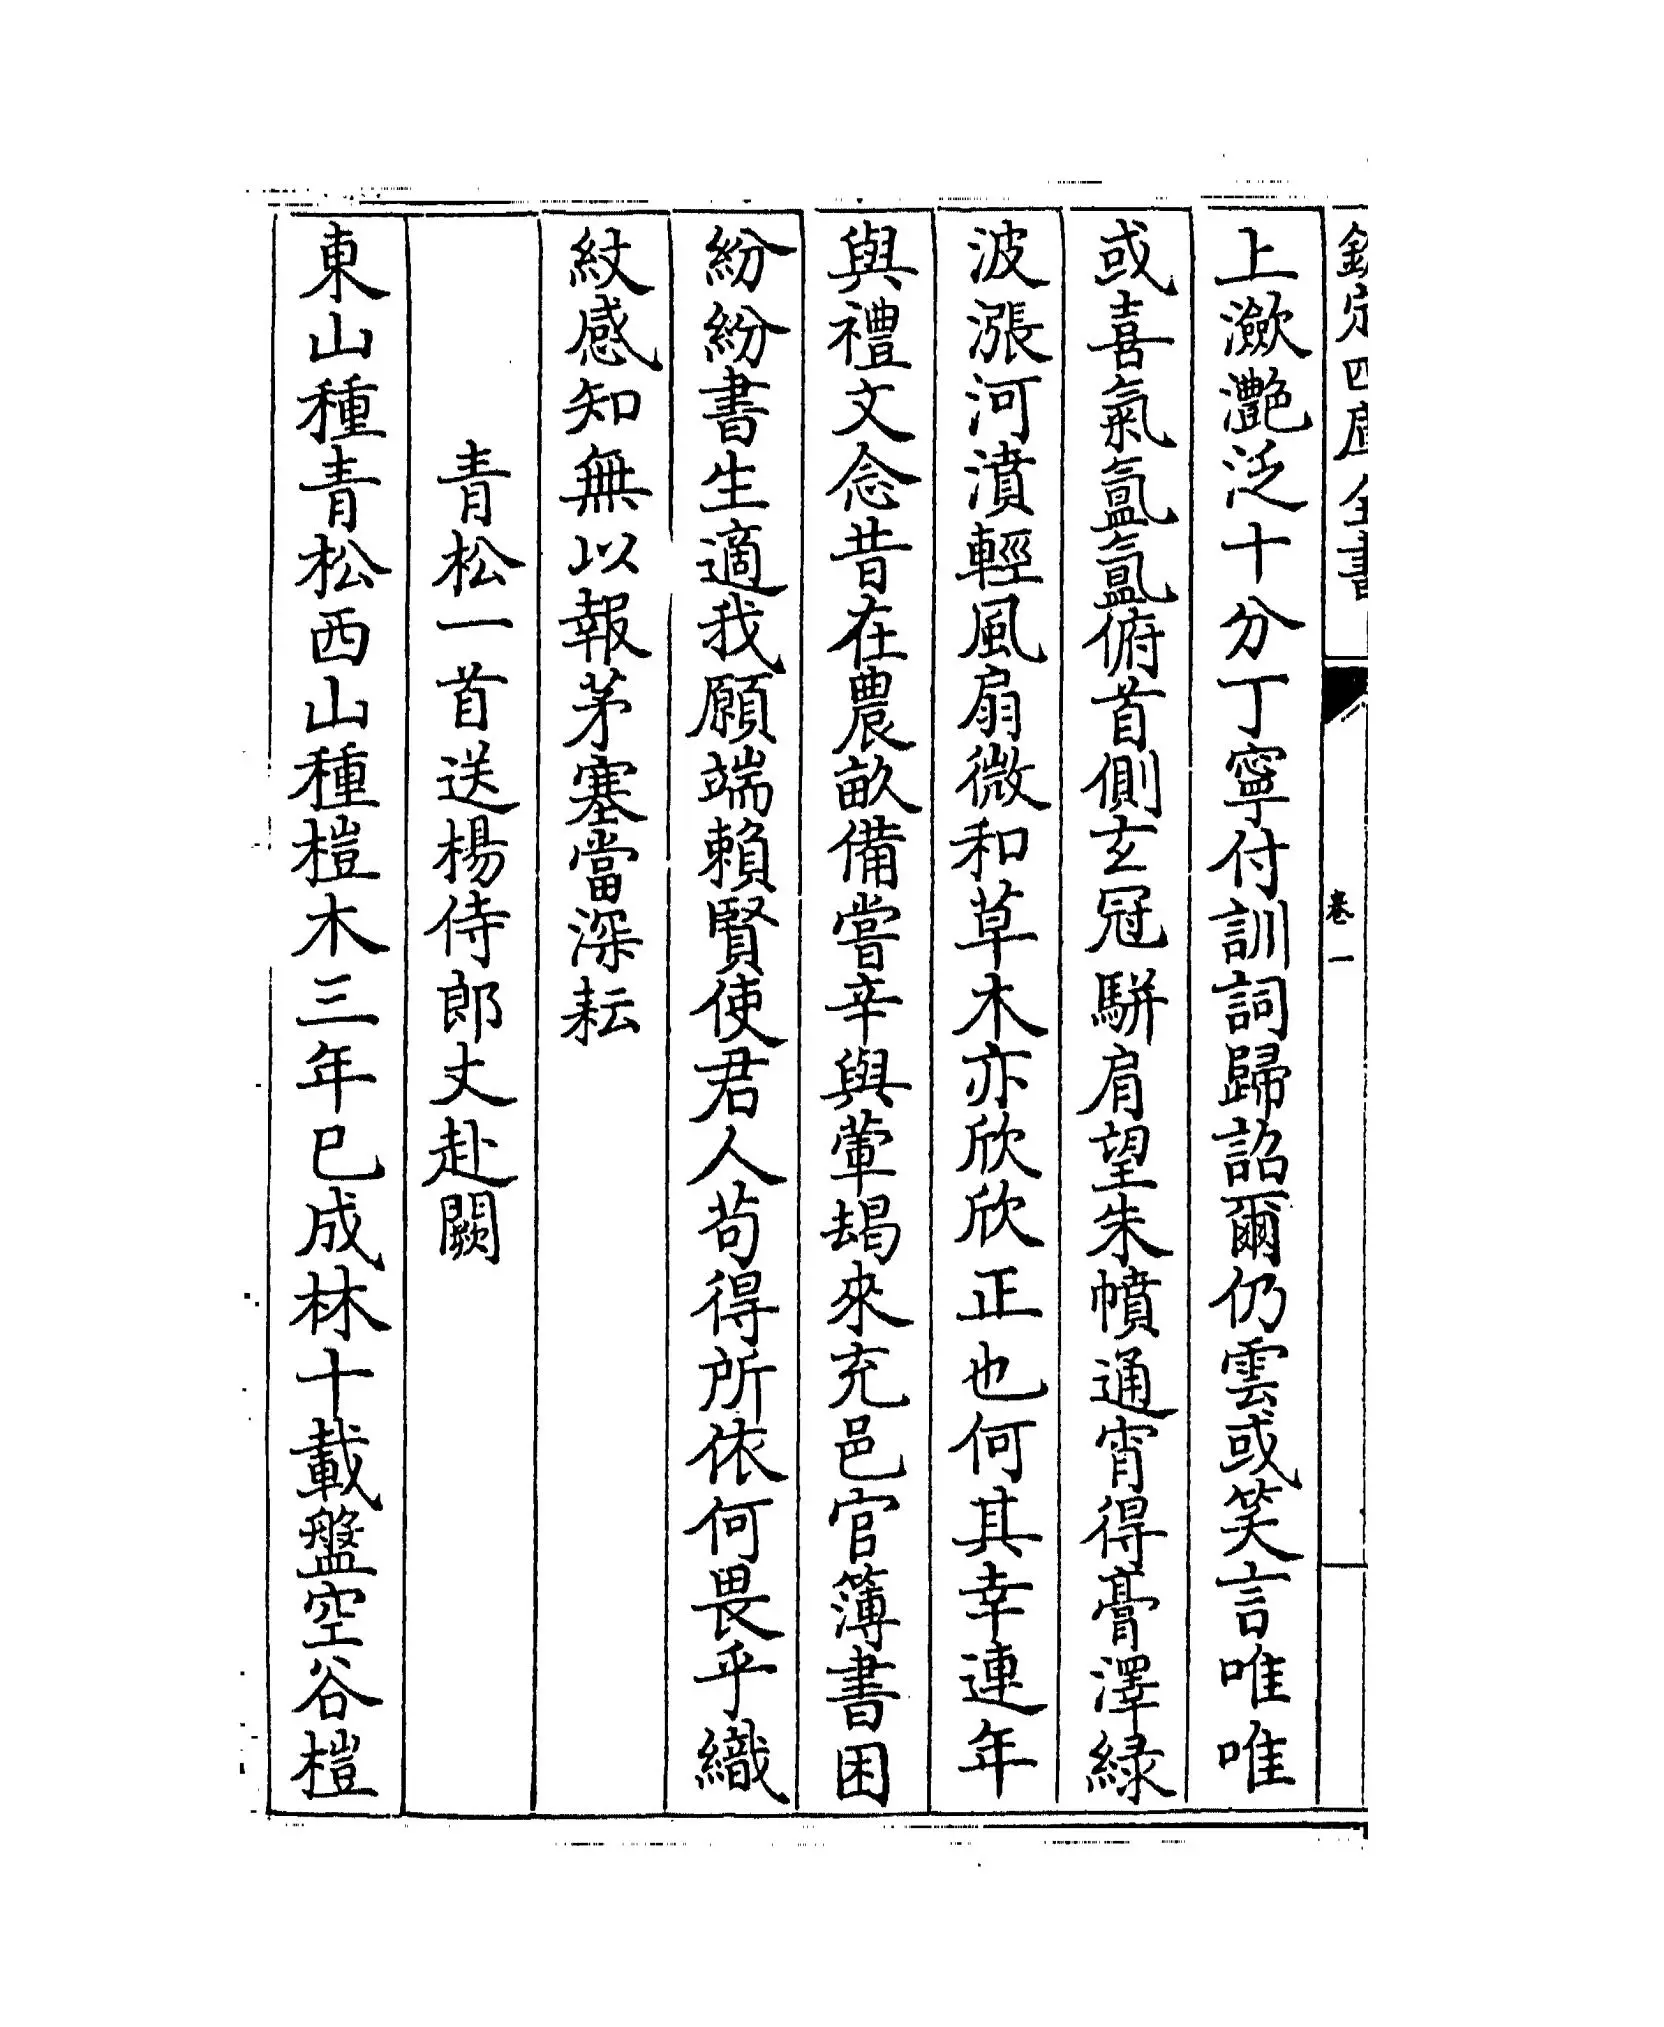 欽定四庫全書
卷一
上瀲灩泛十分丁寧付訓詞歸詔爾仍雲或笑言唯唯
或喜氣氲氲俯首側玄冠駢肩望朱幘通宵得膏澤緑
波漲河濆輕風扇微和草木亦欣欣正也何其幸連年
與禮文念昔在農畝備嘗辛與葷朅來充邑官簿書困
紛紛書生適我願端賴賢使君人苟得所依何畏乎織
紋感知無以報茅塞當深耘
青松一首送楊侍郎丈赴闕
東山種青松西山種榿木三年已成林十載盤空谷榿